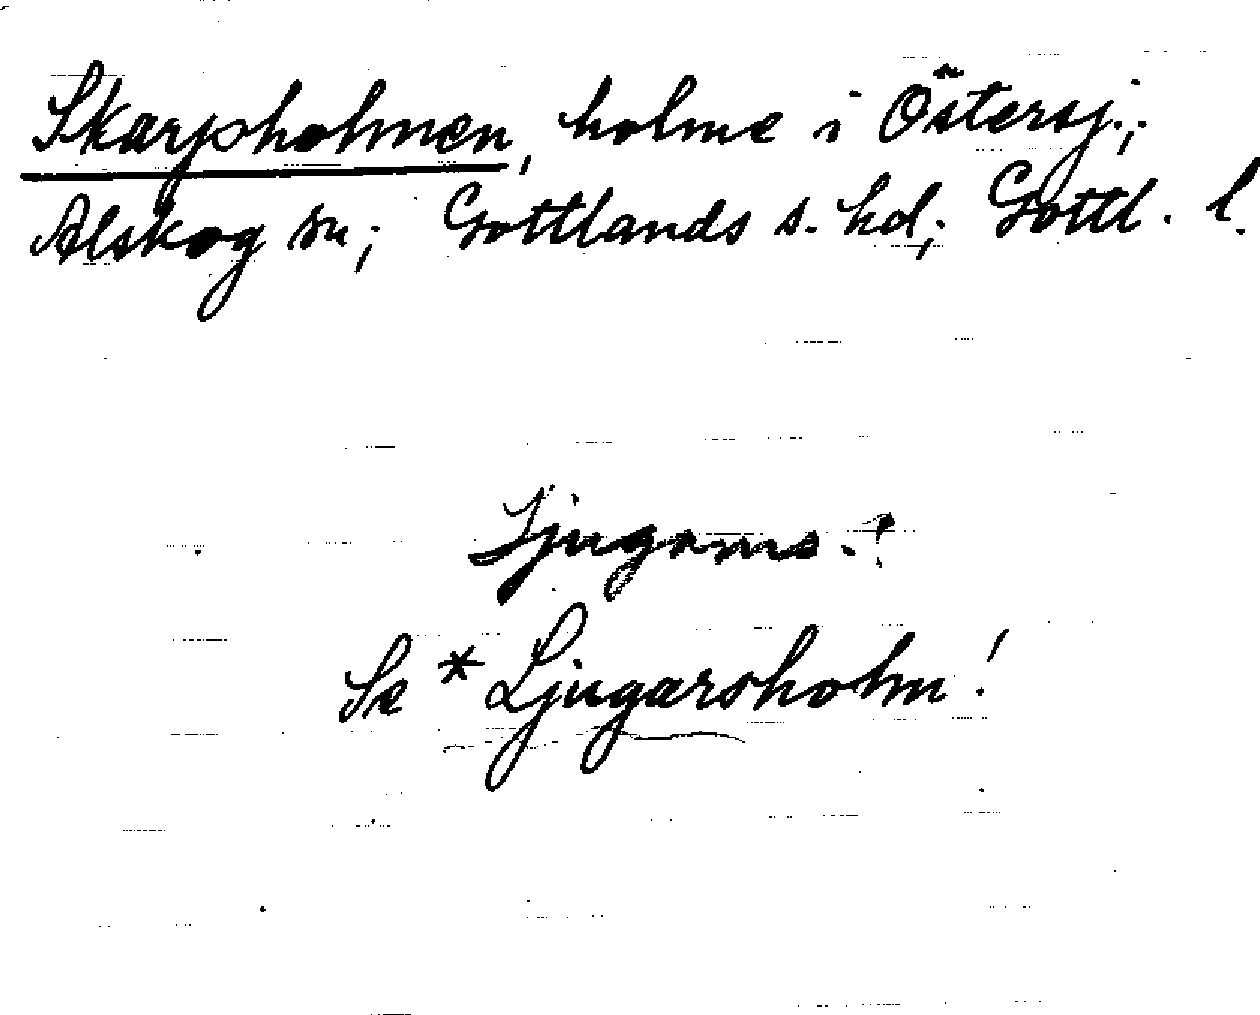 Skarpholmen, holme i Östersj.;
Alskog sn; Gottlands s. hd; Gottl. l.
Se *Ljugarsholm!